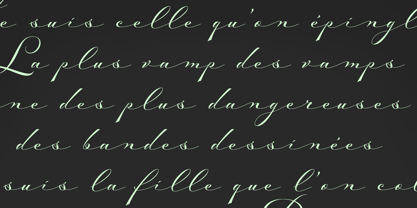 e suis celle qu'on épingl
La plus vamp des vamps
ne des plus dangereuses
des bandes dessinées
suis la fille que l'on col